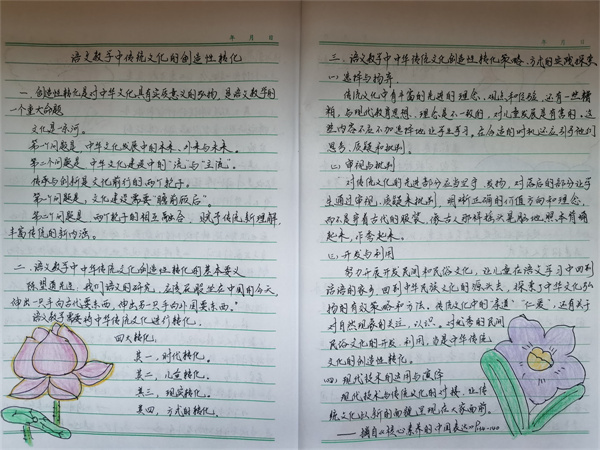 年 月 日
语文教学中传统文化的创造性转化
一、创造性转化是对中华文化具有实质意义的弘扬,是语文教学的
一个重大命题
文化是一条河。
第一个问题是,中华文化发展中的本来、外来与未来。
第二个问题是,中华文化建设中的"流"与"主流"。
传承与创新是文化前行的两个轮子。
第一个问题是,文化建设需要"瞻前顾后"。
第二个问题是,两个轮子的相互融合,赋予传统新理解,
丰富传统的新内涵。
二、语文教学中中华传统文化创造性转化的基本要义
陈望道先生:"我们语文的研究,应该屁股坐在中国的今天,
伸出一只手向古代要东西,伸出另一只手向外国要东西。"
语文教学需要将中华传统文化进行转化。
四大转化:
其一,时代转化。
其二,儿童转化。
其三,现实转化。
其四,方式的转化。
年 月 日
三、语文教学中中华传统文化创造性转化策略、方式的实践探索
(一)选择与扬弃
传统文化中有丰富的先进的理念、观点和经验,还有一些糟
粕,与现代教育思想、理念是不一致的,对儿童发展是有害的,这
些内容不应不加选择地让学生学习,在合适的时机还应引导他们
思考、质疑和批判。
(二)审视与批判
对传统文化的先进部分应当坚守、发扬,对落后的部分让学
生通过审视、质疑来批判,明晰正确的价值方向和理念,
而不是穿着古代的服装,像古人那样摇头晃脑地照本宣诵
起来,作秀起来。
(三)开发与利用
努力开展开发民间和民俗文化,让儿童在语文学习中回到
语语的家乡,回到中华民族文化的源头去,探索了中华文化弘
扬的有效策略和方法。传统文化中的"孝道""仁爱",还有关于
对自然现象的关注、认识。对优秀的民间
民俗文化的开发、利用,当是中华传统
文化的创造性转化。
(四)现代技术的运用与演绎
现代技术与传统文化的对接,让传
统文化以新的面貌呈现在大家面前。
——摘自《核心素养的中国表达》P144-140